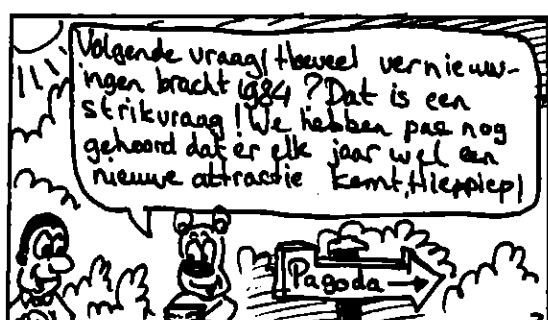 Volgende vraag! Hoeveel vernieuw-
ingen bracht 1984? Dat is een
strikvraag! We hebben pas nog
gehoord dat er elk jaar wel een
nieuwe attractie komt, Hieppiep!
Pagoda